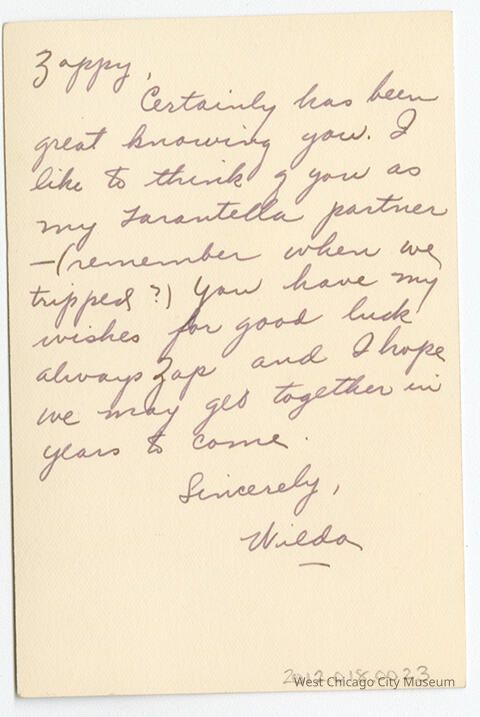 Zappy,
Certainly has been
great knowing you. I
like to think of you as
my tarantella partner
—(remember when we
tripped?) You have my
wishes for good luck
always Zap and I hope
we may get together in
years to come.
Sincerely,
Wilda
2012.018.0023
West Chicago City Museum